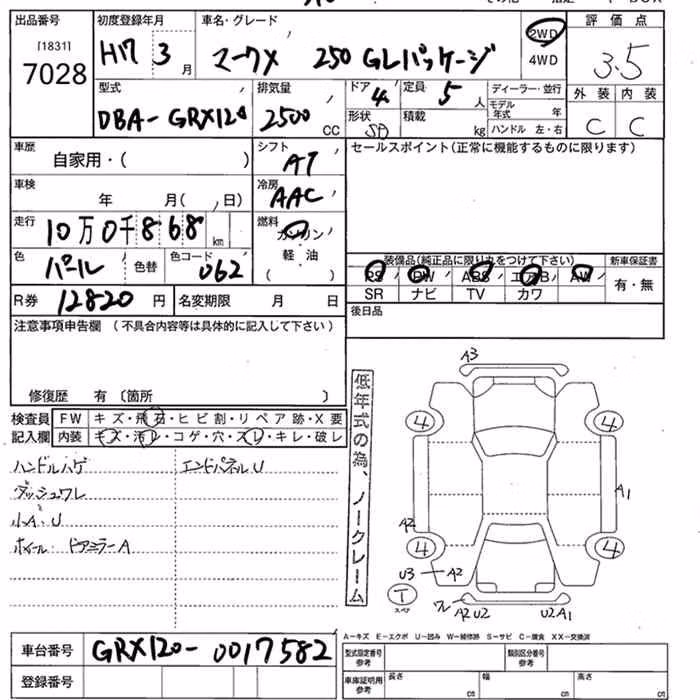 出品番号 初度登録年月 車名・グレード 評価点
［1831］
7028 H17 3月 マークX 250 GLパッケージ 2WD 3.5
4WD
型式 排気量 ドア 定員 ディーラー・並行 外装 内装
DBA-GRX120 2500CC 4 5人 モデル年式 年
形状 SD 積載 kg ハンドル 左・右 C C
車歴 シフト セールスポイント（正常に機能するものに限ります）
自家用・（ ） AT
車検 冷房
年 月（ 、日） AAC
走行 燃料
10万0千868km ガソリン
色 色替 色コード 軽油 装備品（純正品に限り丸をつけて下さい） 新車保証書
パール 062 （ ） PS PW ABS エアB AW 有・無
R券 12820円 名変期限 月 日 SR ナビ TV カワ
注意事項申告欄（不具合内容等は具体的に記入して下さい） 後日品
修復歴 有〔箇所 〕
検査員 FW キズ・飛石・ヒビ割・リペア跡・X要
記入欄 内装 キズ・汚レ・コゲ・穴・スレ・キレ・破レ
ハンドルハゲ エンドパネルU
ダッシュワレ
小A・U
ホイール・ドアミラーA
低年式の為、ノークレーム
A3
4 4
A1
A2
4 4
U3 A2
T
スペア
ワレ A2U2 U2A1
A－キズ E－エクボ U－凹み W－補修跡 S－サビ C－腐食 XX－交換済
車台番号 GRX120-0017582 型式指定番号 参考 類別区分番号 参考
登録番号 車庫証明用 参考 長さ cm 幅 cm 高さ cm